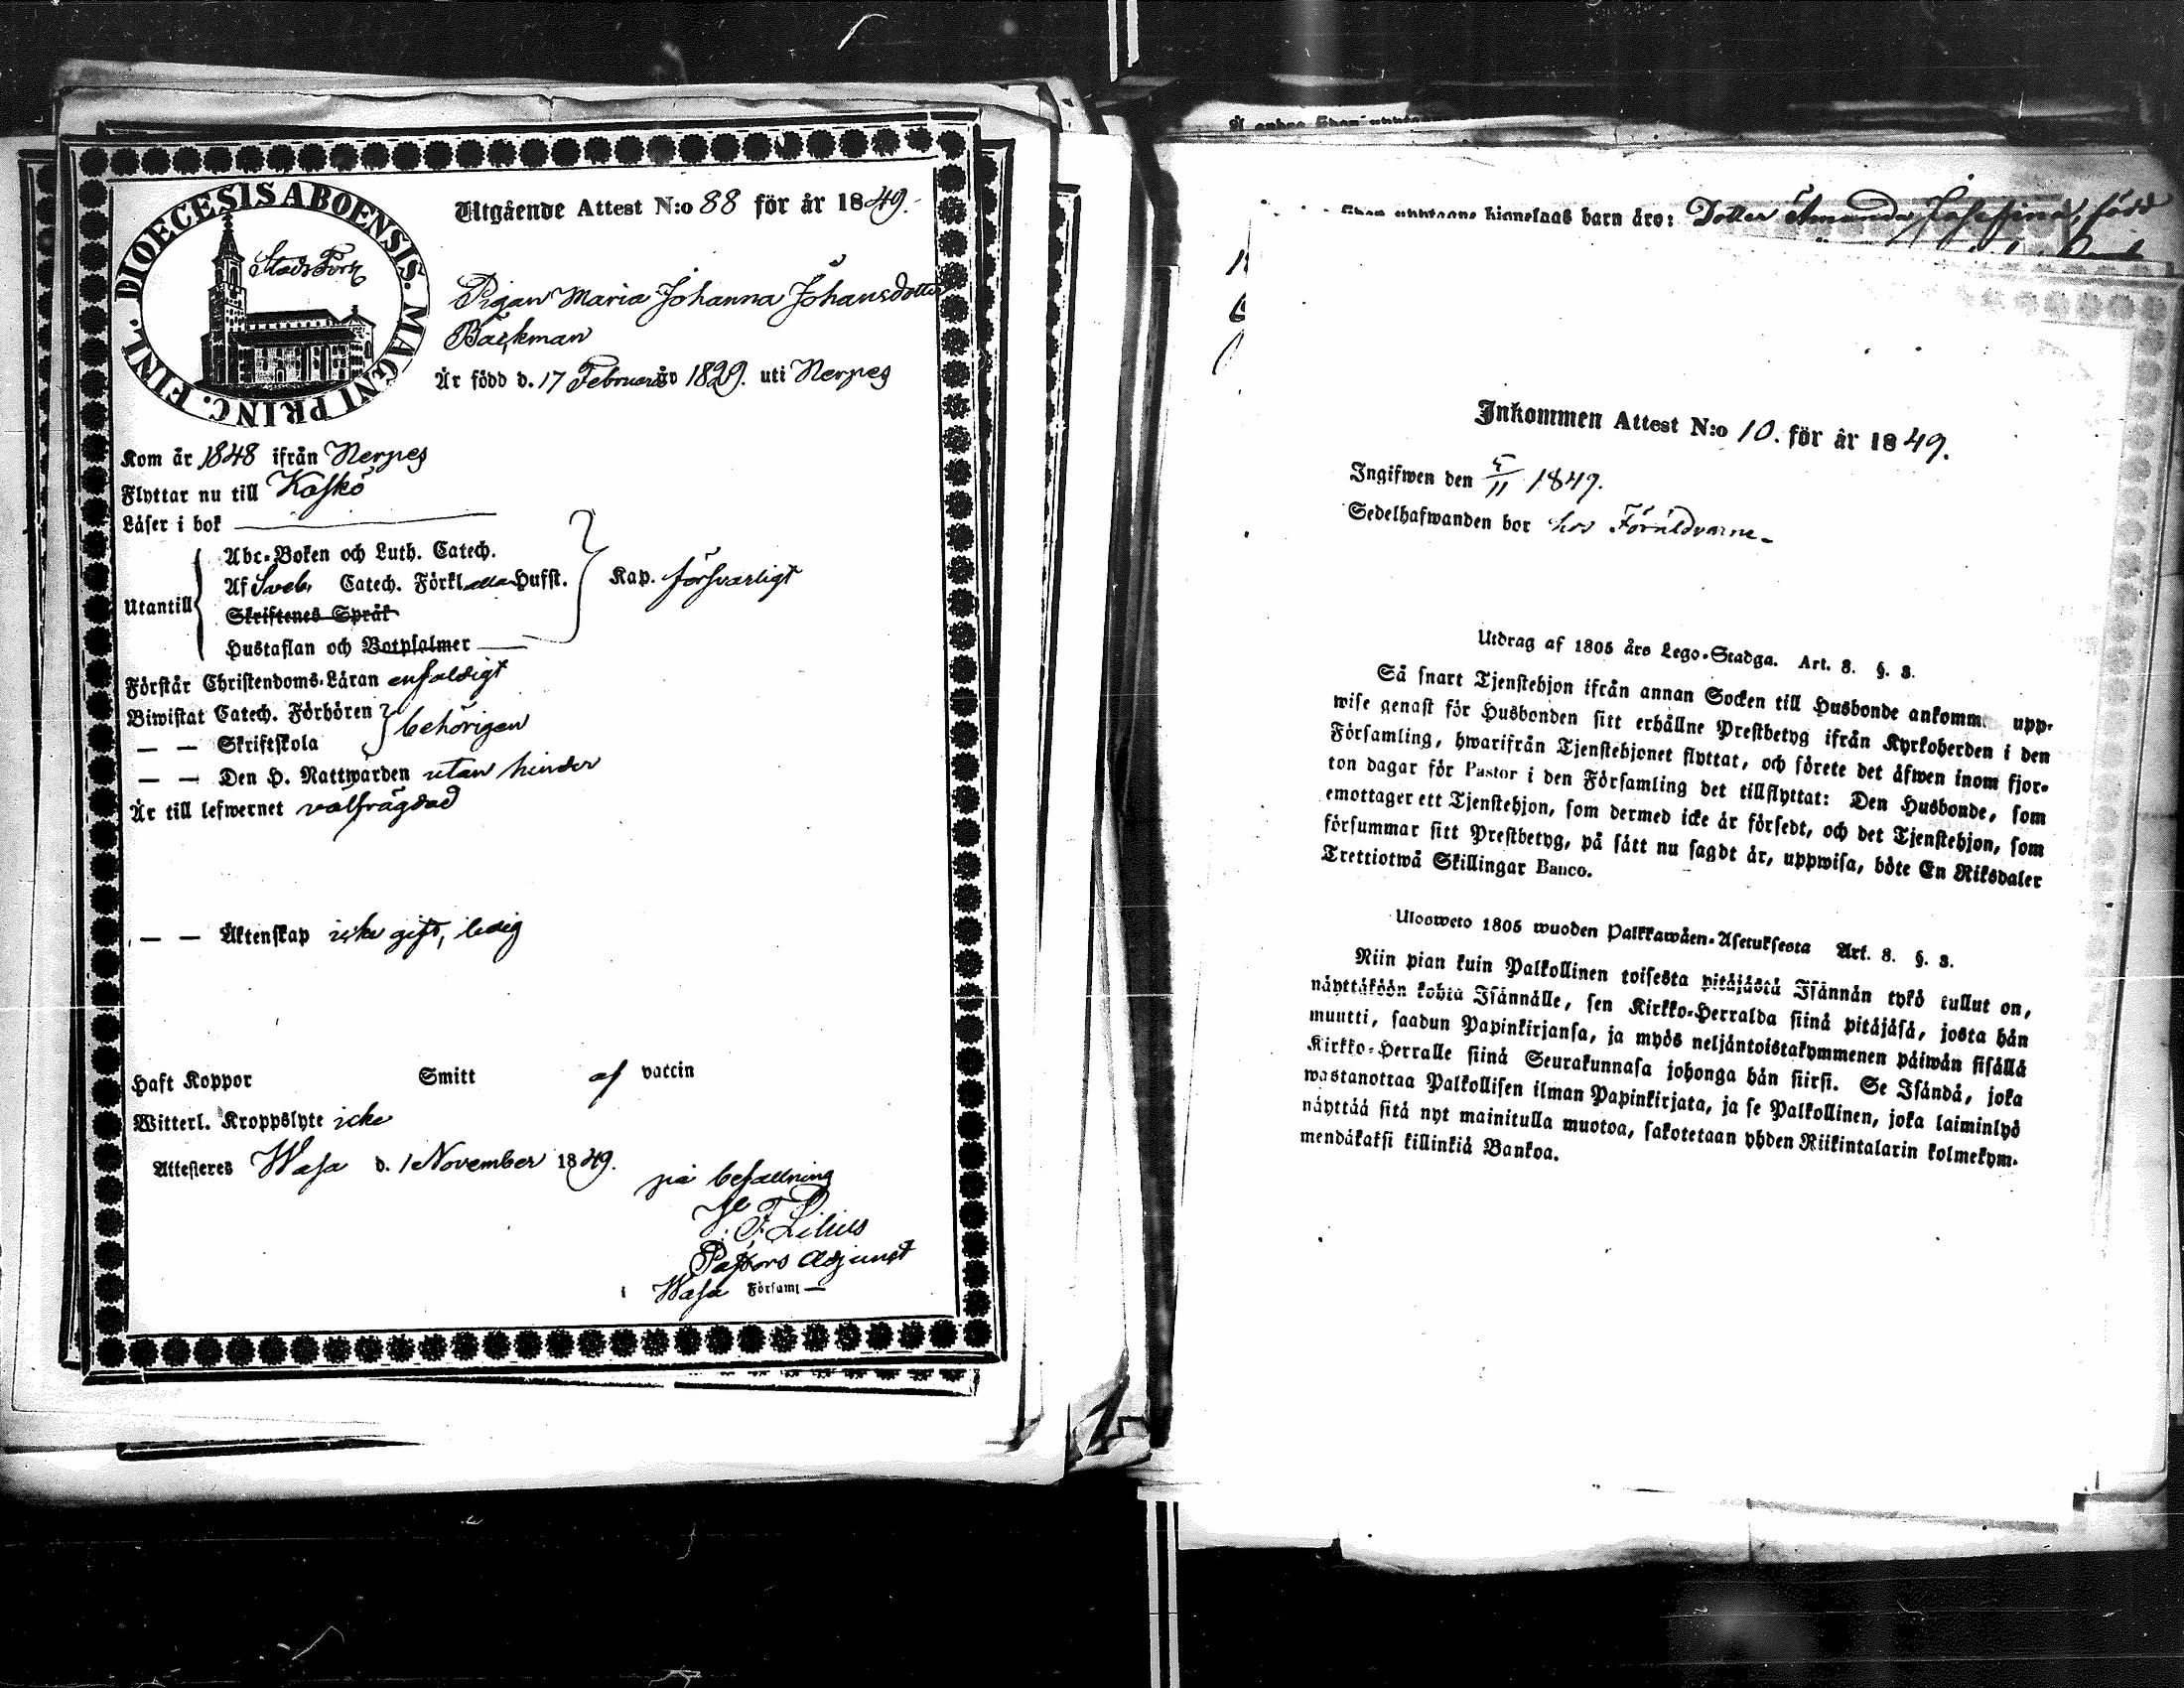 DIOECESIS ABOENSIS. MAGNI PRINC. FINL.
Utgående Attest N:o 88 för år 1849.
Pigan Maria Johanna Johansdotter
Backman
Är född d. 17 Februarii år 1829. uti Nerpes
Kom år 1848 ifrån Nerpes
Flyttar nu till Kaskö
Läser i bok
Utantill
Abc-Boken och Luth. Catech.
Af Sveb. Catech. Förkl. eller Hufst.
Skriftenes Språk
Hustaflan och Botpsalmer
Kap. försvarligt
Förstår Christendoms-Läran enfaldigt
Biwistat Catech. Förhören
— — Skriftskola
behörigen
— — Den H. Nattwarden utan hinder
Är till lefwernet välfrägdad
— — Äktenskap icke gift, ledig
Haft Koppor Smitt af vaccin
Witterl. Kroppslyte icke
Attesteres Wasa d. 1 November 1849.
på befallning
F. Lilius
Pastors Adjunct
i Wasa Församl
hionelags barn äro: Dotter Amanda Josefina, född
Inkommen Attest N:o 10. för år 1849.
Ingifwen den 5/11 1849.
Sedelhafwanden bor hos Föräldrarne
Utdrag af 1805 års Lego-Stadga. Art. 8. §. 3.
Så snart Tjenstehjon ifrån annan Socken till Husbonde ankomm upp-
wise genast för Husbonden sitt erhållne Prestbetyg ifrån Kyrkoherden i den
Församling, hwarifrån Tjenstehjonet flyttat, och förete det äfwen inom fjor-
ton dagar för Pastor i den Församling det tillflyttat: Den Husbonde, som
emottager ett Tjenstehjon, som dermed icke är försedt, och det Tjenstehjon, som
försummar sitt Prestbetyg, på sätt nu sagdt är, uppwisa, böte En Riksdaler
Trettiotwå Skillingar Banco.
Ulosweto 1805 wuoden Palkkawäen-Asetuksesta Art. 8. §. 3.
Niin pian kuin Palkollinen toisesta pitäjästä Isännän tykö tullut on,
näyttäköön kohta Isännälle, sen Kirkko-Herralda siinä pitäjäsä, josta hän
muutti, saadun Papinkirjansa, ja myös neljäntoistakymmenen päiwän sisällä
Kirkko-Herralle siinä Seurakunnasa johonga hän siirsi. Se Isändä, joka
wastanottaa Palkollisen ilman Papinkirjata, ja se Palkollinen, joka laiminlyö
näyttää sitä nyt mainitulla muotoa, sakotetaan yhden Riikintalarin kolmekym-
mendäkaksi killinkiä Bankoa.